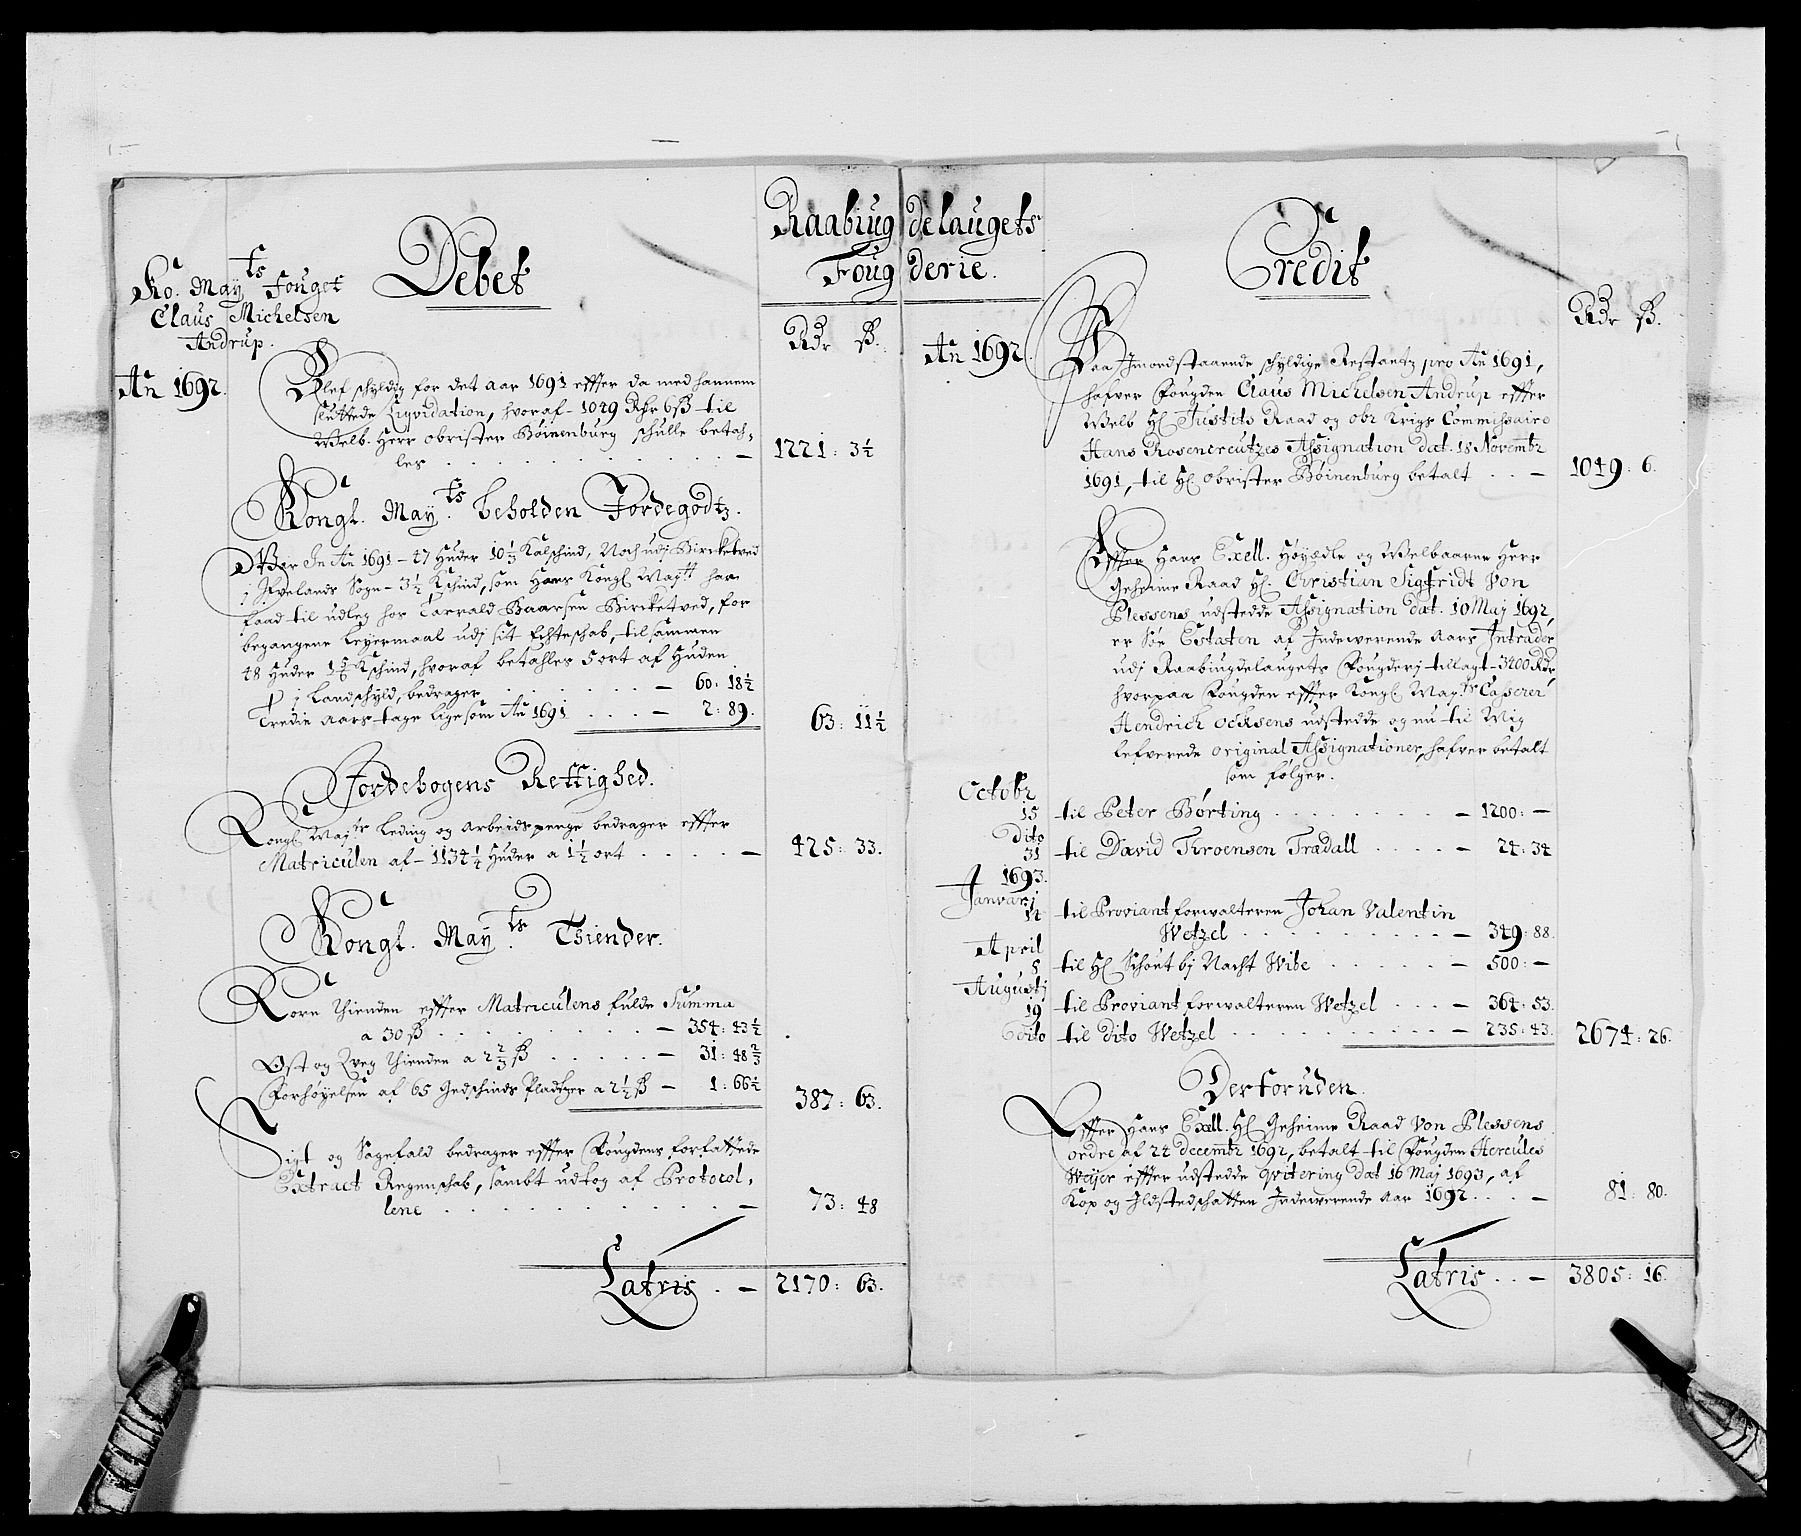 Raabiug delaugets
Foug derie.
Debet
Ko. May.ts Fouget
Claus Michelsen
Andrup.
Rdr ß.
An 1692.
Blef schyldig for det aar 1691 effter da med hannem
sluttede Liqvidation, hvoraf 1049 Rdr 6 ß til
Welb. Herr obrister Böinenburg schulle betah-
les . . . — 1221: 3½
Kongl. May.ts beholden Jordegodtz.
War In An 1691 – 47 Huder 10⅓ Kalschind, Noch udj Bircketved
j Ivelands Sogn – 3½ Kschind, som Hans Kongl Maytt haar
faad til udleg hos Tarvald Baarsen Bircketved, for
begangene Leyermaal udj sit Echteschab, til sammen
48 Huder Kschind, hvoraf betahles 5 ort af Huden
j Landschyld, bedrager . . . — 60: 18½
Tredie Aars tage ligesom An 1691 . . . — 2: 89.
63: 11½
Jordebogens Rettighed.
Kongl Mayts Leding og Arbeidspenge bedrager effter
Matriculen af – 1134½ Huder a 1½ ort . . . — 425: 33.
Kongl. May.ts Tiender.
Korn Thienden effter Matriculens fulde Summa
a 30 ß . . . — 354: 43½
Ost og Qveg Thienden a 2⅔ ß . . . — 31: 48⅔
Forhöyelsen af 65 Gedschinds Pladtzer a 2½ ß — 1: 66½
387: 63.
Sigt og Sagefald bedrager effter Fougdens forfattede
Extract Regenschab, sambt udtog af Protocol-
lene . . . — 73: 48
Latris . — 2170: 63.
Credit
Rdr ß.
An 1692.
Paa Imodstaaende schyldige Restantz pro An 1691,
hafver Fougden Claus Michelsen Andrup effter
Welb Hl Justits Raad og obr Krigs Commissaire
Hans Rosencreutzes Assignation dat. 18 Novembr
1691, til Hl obrister Böinenburg betalt . . — 1049: 6.
Effter Hans Exell. Höyædle og Welbaarne Herr
Geheime Raad Hl. Christian Sigfridt Von
Plessens udstedde Assignation dat. 10 Maj 1692,
er Söe Estaten af Indeverende Aars Intrader
udj Raabiugdelaugets Fougderj tillagt – 3400 Rdr
hvorpaa Fougden effter Kongl Mayts Casserer
Hendrich ocksens udstedde og nu til Mig
lefverede original Assignationer, hafver betalt
som følger.
Octobr
15 til Peter Børting . . . — 1200: —
Dito
31 til David Thoensen Tradall . . . — 24: 34
1693.
Januarj
12 til Proviantforwalteren Johan Valentin
Wetzel . . . — 349: 88.
April
5 til Hl Schout bj Nacht Wibe . . . — 500: —
Augustj
19 til Proviant forwalteren Wetzel . . . — 364: 53.
Edito til Dito Wetzel . . . — 235: 43.
2674: 26.
Desforuden.
Effter Hans Exell. Hl Geheime Raad Von Plessens
ordre af 24 decembr 1692, betalt til Fougden Hercules
Weijer effter udstedde Qvitering dat 16 Maj 1693, af
Kop og Ildstedschatten Indeverende Aar 1692 . . . — 81: 80.
Latris . . — 3805: 16.